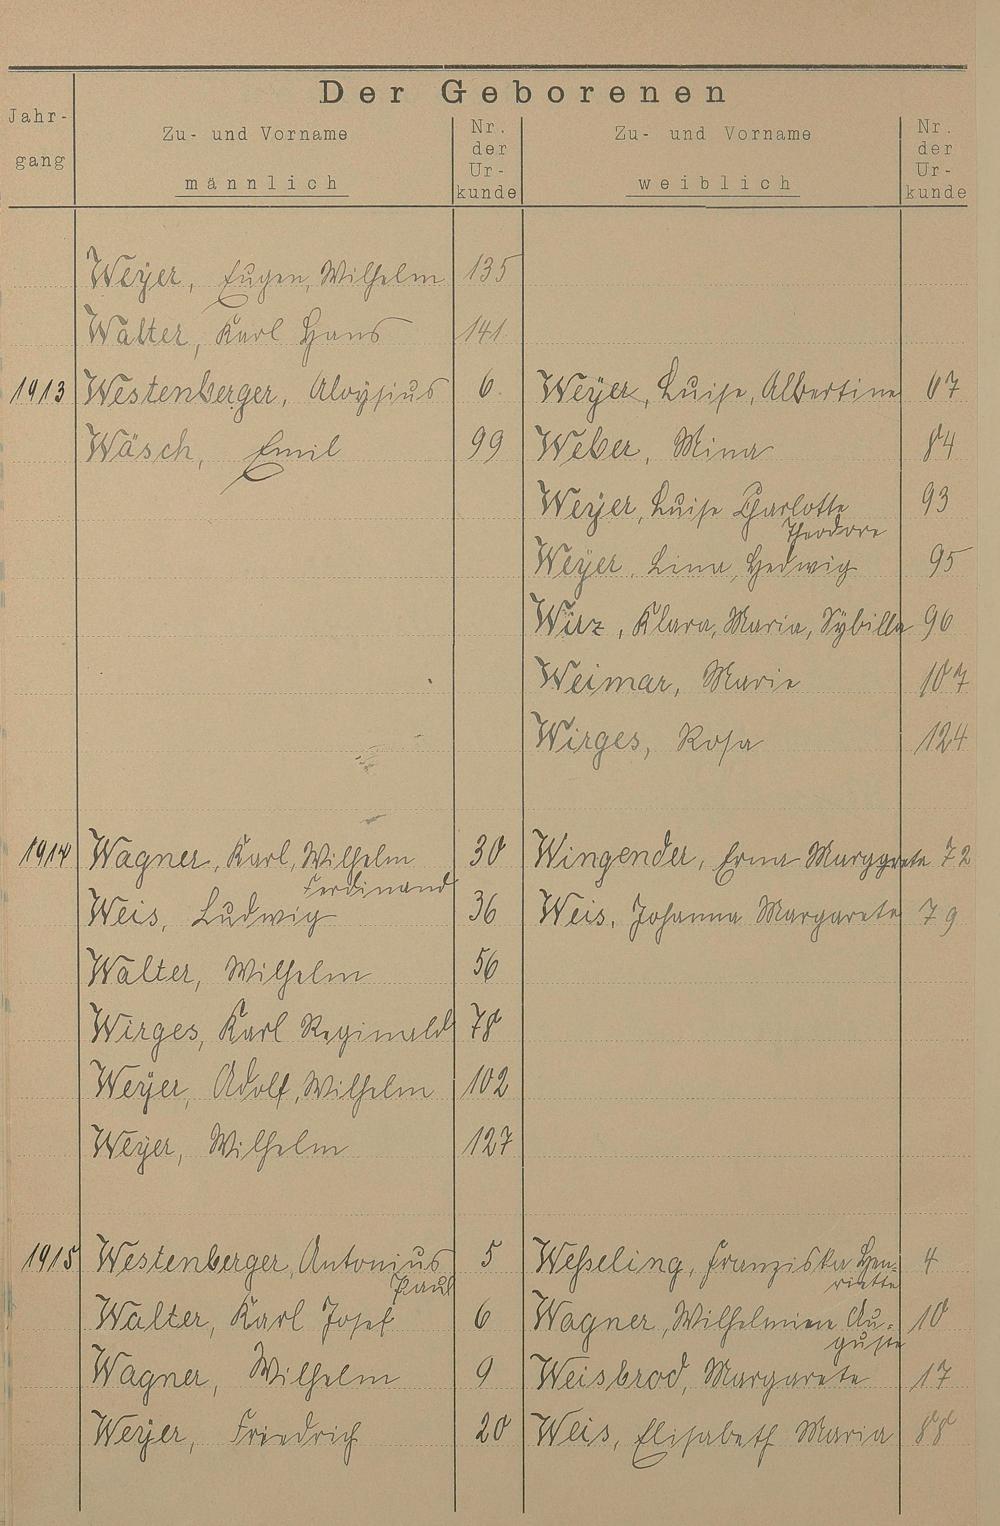 Der Geborenen
Jahr-
gang
Zu- und Vorname
männlich
Nr.
der
Ur-
kunde
Zu- und Vorname
weiblich
Nr.
der
Ur-
kunde
Weyer, Eugen, Wilhelm 135
Walter, Karl Hans 141
1913 Westenberger, Aloysius 6. Weyer, Luise, Albertine 67
Wäsch, Emil 99 Weber, Mina 84
Weyer, Luise Charlotte 93
Theodore
Weyer, Lina, Hedwig 95
Wirz, Klara, Maria, Sybilla 96
Weimar, Marie 107
Wirges, Rosa 124
1914 Wagner, Karl, Wilhelm 30 Wingender, Erna Margrete 72
Ferdinand
Weis, Ludwig 36 Weis, Johanna Margarete 79
Walter, Wilhelm 56
Wirges, Karl Reginald 78
Weyer, Adolf, Wilhelm 102
Weyer, Wilhelm 127
1915 Westenberger, Antonius 5 Weßeling, Franziska Hen- 4
Paul riette
Walter, Karl Josef 6 Wagner, Wilhelmine Au- 10
guste
Wagner, Wilhelm 9 Weisbrod, Margarete 17
Weyer, Friedrich 20 Weis, Elisabeth Maria 88